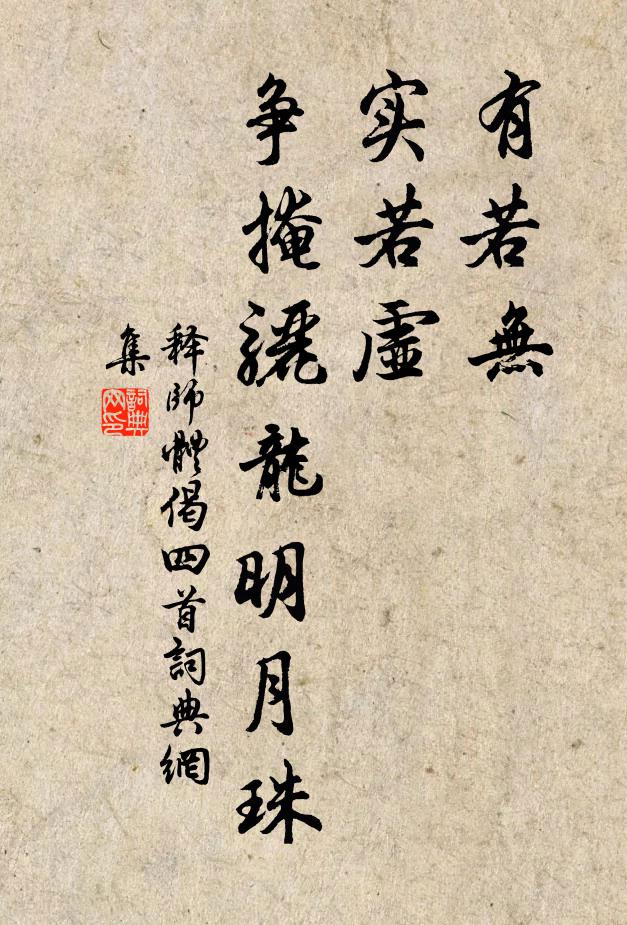 有若無
实若虛
争掩驪龍明月珠
释師體偈四首詞典網
集
詞典網印